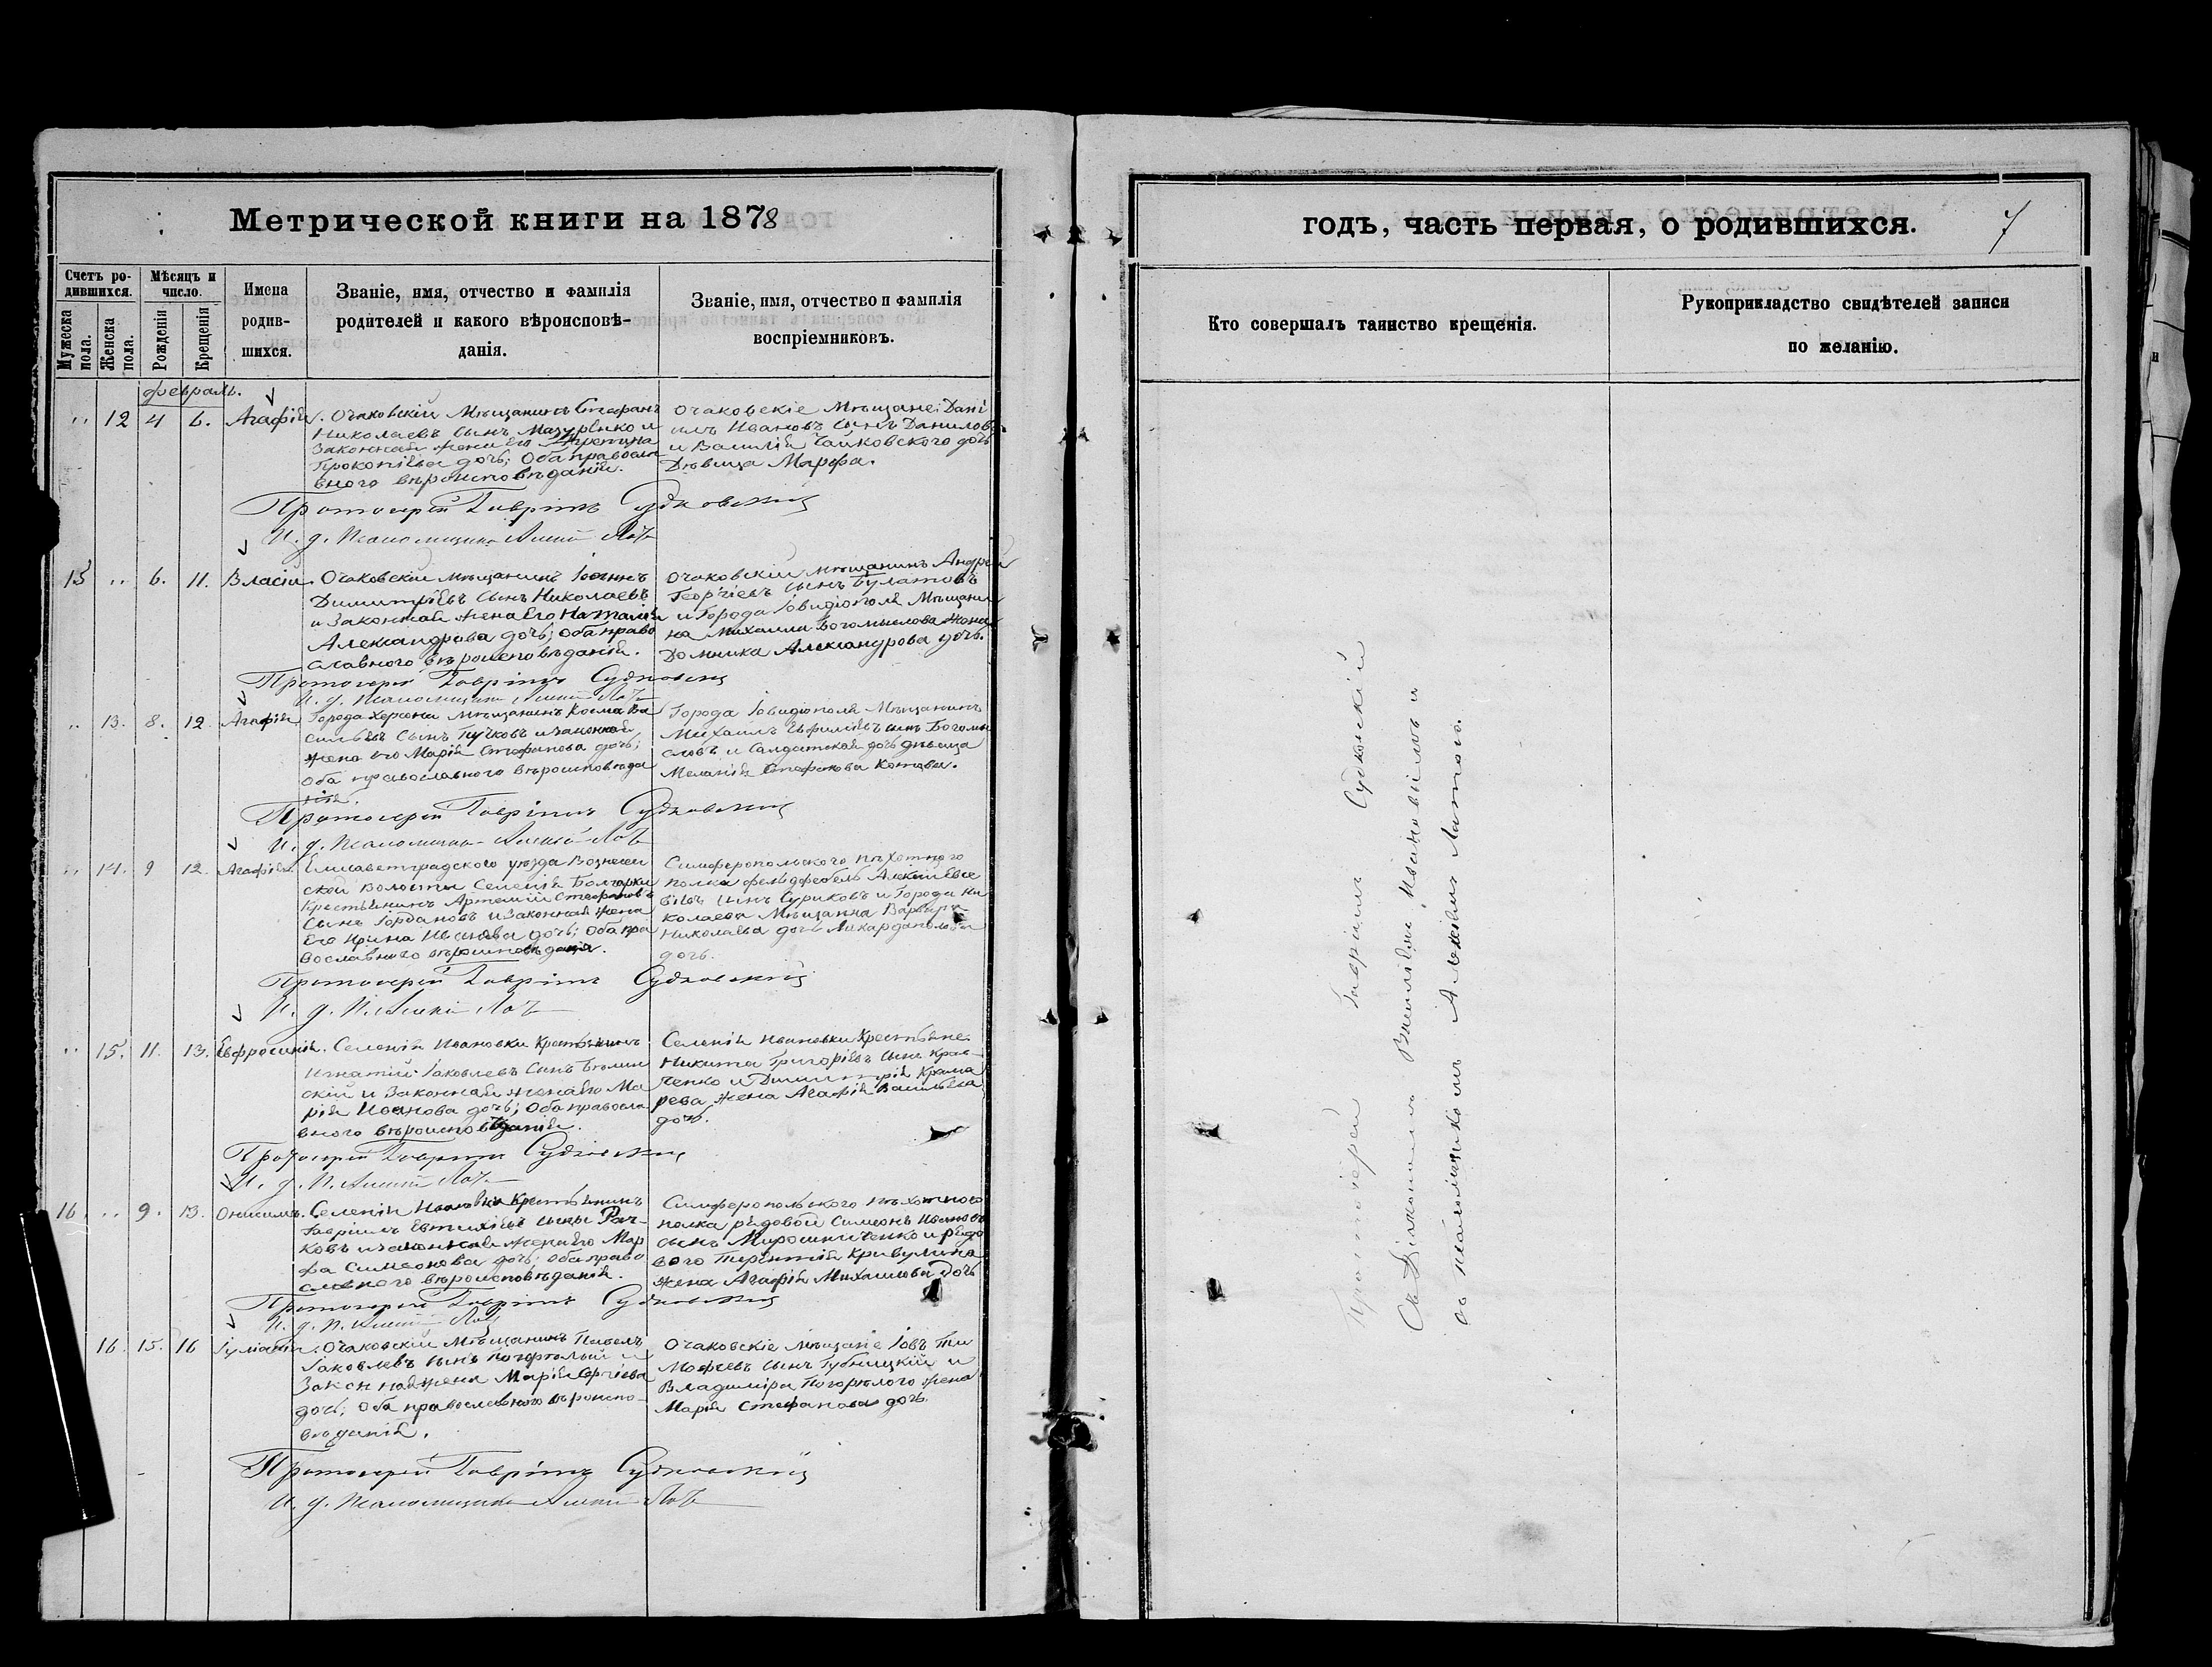 Метрической книги на 1878
Счетъ родившихся.
Мужеска пола.
Женска пола.
Мѣсяцъ и число.
Рожденія
Крещенія
Имена родившихся.
Званіе, имя, отчество и фамилія
родителей и какого вѣроисповѣ-
данія.
Званіе, имя, отчество и фамилія
воспріемниковъ.
годъ, часть первая, о родившихся.
7
Кто совершалъ таинство крещенія.
Рукоприкладство свидѣтелей записи
по желанію.
февраль.
" 12 4 6. Агафія.
Очаковскій Мѣщанинъ Стефанъ
Николаевъ сынъ Мазуренко и
Законная жена Его
Прокопіева дочь; Оба правосла
вного вѣроисповѣданія.
Очаковскіе Мѣщане: Дані
илъ Ивановъ сынъ Даниловъ
и Василія Чайковского дочь
Дѣвица Марфа.
Протоіерей Гавріилъ Судковскій
И. д. Псаломщика
15 " 6. 11. Власій.
Очаковскій мѣщанинъ Іоаннъ
Димитріевъ Сынъ Николаевъ
и Законная жена Его Наталія
Александрова дочь; оба право
славного вѣроисповѣданія.
Очаковскій мѣщанинъ Андрей
Георгіевъ сынъ Булатовъ
и Города Овидіополя Мѣщани
на Михаила Богомыслова жена
Домника Александрова дочь.
Протоіерей Гавріилъ Судковскій
И. д. Псаломщика
" 13. 8. 12. Агафія
Города Херсона Мѣщанинъ Косма Ва
сильевъ Сынъ Пучковъ и законная
жена его Марія Стефанова дочь;
Оба православного вѣроисповѣда
нія.
Города Овидіополя Мѣщанинъ
Михаилъ сынъ Богомы
словъ и Солдатская дочь дѣвица
Меланія Стефанова Котова.
Протоіерей Гавріилъ Судковскій
И. д. Псаломщика
" 14. 9 12. Агафія.
Елисаветградского уѣзда Вознесен
ской волости Селенія Болгарки
Крестьянинъ Артемій Стефановъ
Сынъ Іордановъ и Законная жена
Его Ирина Иванова дочь; Оба пра
вославного вѣроисповѣданія.
Симферопольского пѣхотного
полка фельдфебель Алексій Евсе
віевъ сынъ Суриковъ и Города Ни
колаева Мѣщанка Варвара
Николаева дочь
дочь.
Протоіерей Гавріилъ Судковскій
И. д. П.
" 15. 11. 13. Евфросинія.
Селенія Ивановки Крестьянинъ
Игнатій Іаковлевъ Сынъ
скій и Законная жена его Ма
рія Иванова дочь; Оба правосла
вного вѣроисповѣданія.
Селенія Ивановки Крестьяне:
Никита Григоріевъ Сынъ Крав-
ченко и Димитрія Крама
рева жена Агафія Васильева
дочь.
Протоіерей Гавріилъ Судковскій
И. д. П.
16. " 9. 13. Онисимъ.
Селенія Ивановки Крестьянинъ
Гавріилъ Евтихіевъ сынъ Рач-
ковъ и законная жена его Мар
фа Симеонова дочь; оба право
славного вѣроисповѣданія.
Симферопольского пѣхотного
полка рядовой Симеонъ Ивановъ
сынъ Мирошниченко и рядо
вого Терентія Кривулина
жена Агафія Михаилова дочь
Протоіерей Гавріилъ Судковскій
И. д. П.
16. 15. 16
Очаковскій Мѣщанинъ Павелъ
Іаковлевъ сынъ Погорѣлый и
Законная жена Марія Сергіева
дочь; Оба православного вѣроиспо-
вѣданія.
Очаковскіе мѣщане Іовъ Ти
мофеевъ сынъ Губницкій и
Владиміра Погорѣлого жена
Марія Стефанова дочь.
Протоіерей Гавріилъ Судковскій
И. д. Псаломщика
Протоіерей Гавріилъ Судковскій
Съ Діакономъ Василіемъ и
съ псаломщикомъ Алексіемъ